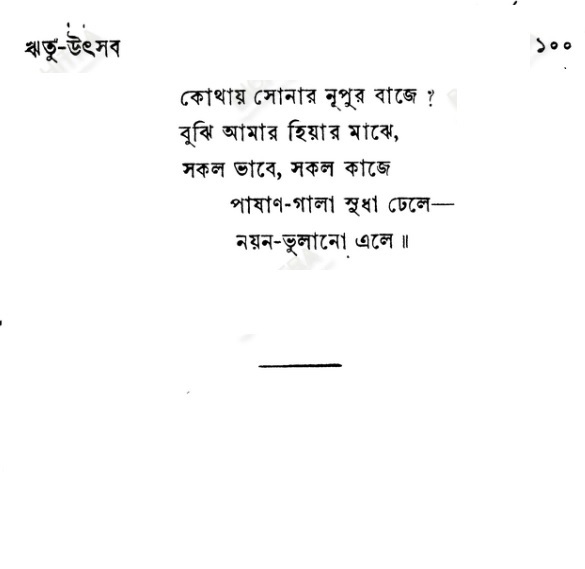 ঋতু-উৎসব ১০০
কোথায় সোনার নূপুর বাজে ?
বুঝি আমার হিয়ার মাঝে,
সকল ভাবে, সকল কাজে
পাষাণ-গালা সুধা ঢেলে—
নয়ন-ভুলানো এলে ॥